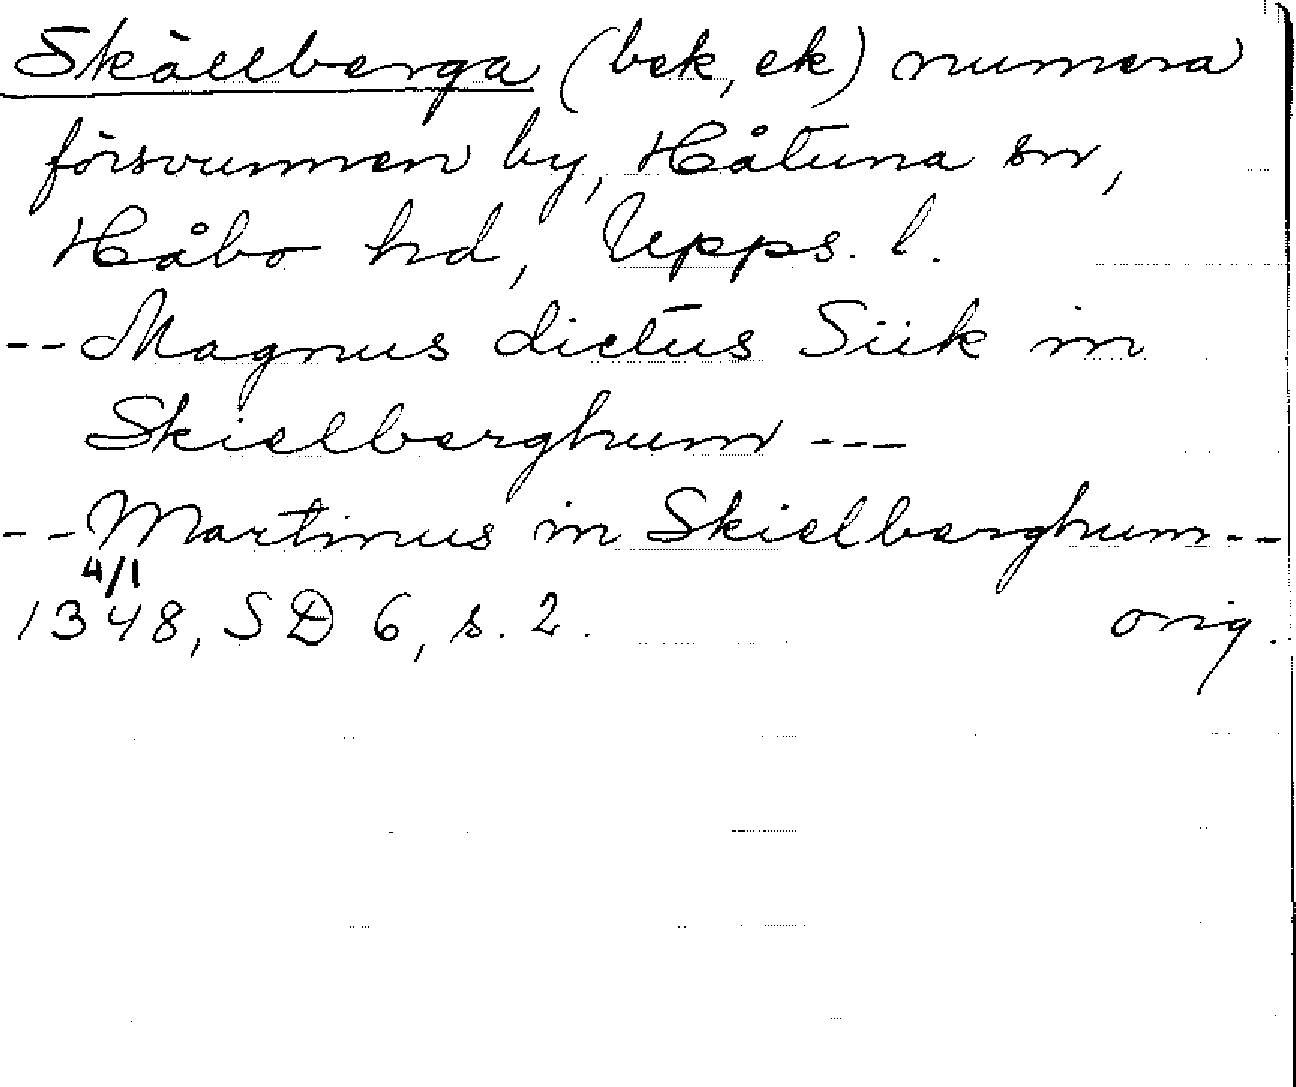 Skällberga (bek, ek) numera
försvunnen by, Håtuna sn,
Håbo hd, Upps. l.
-- Magnus dictus Siik in
Skielberghum ---
-- Martinus in Skielberghum --
4/1
1348, SD 6, s. 2. orig.